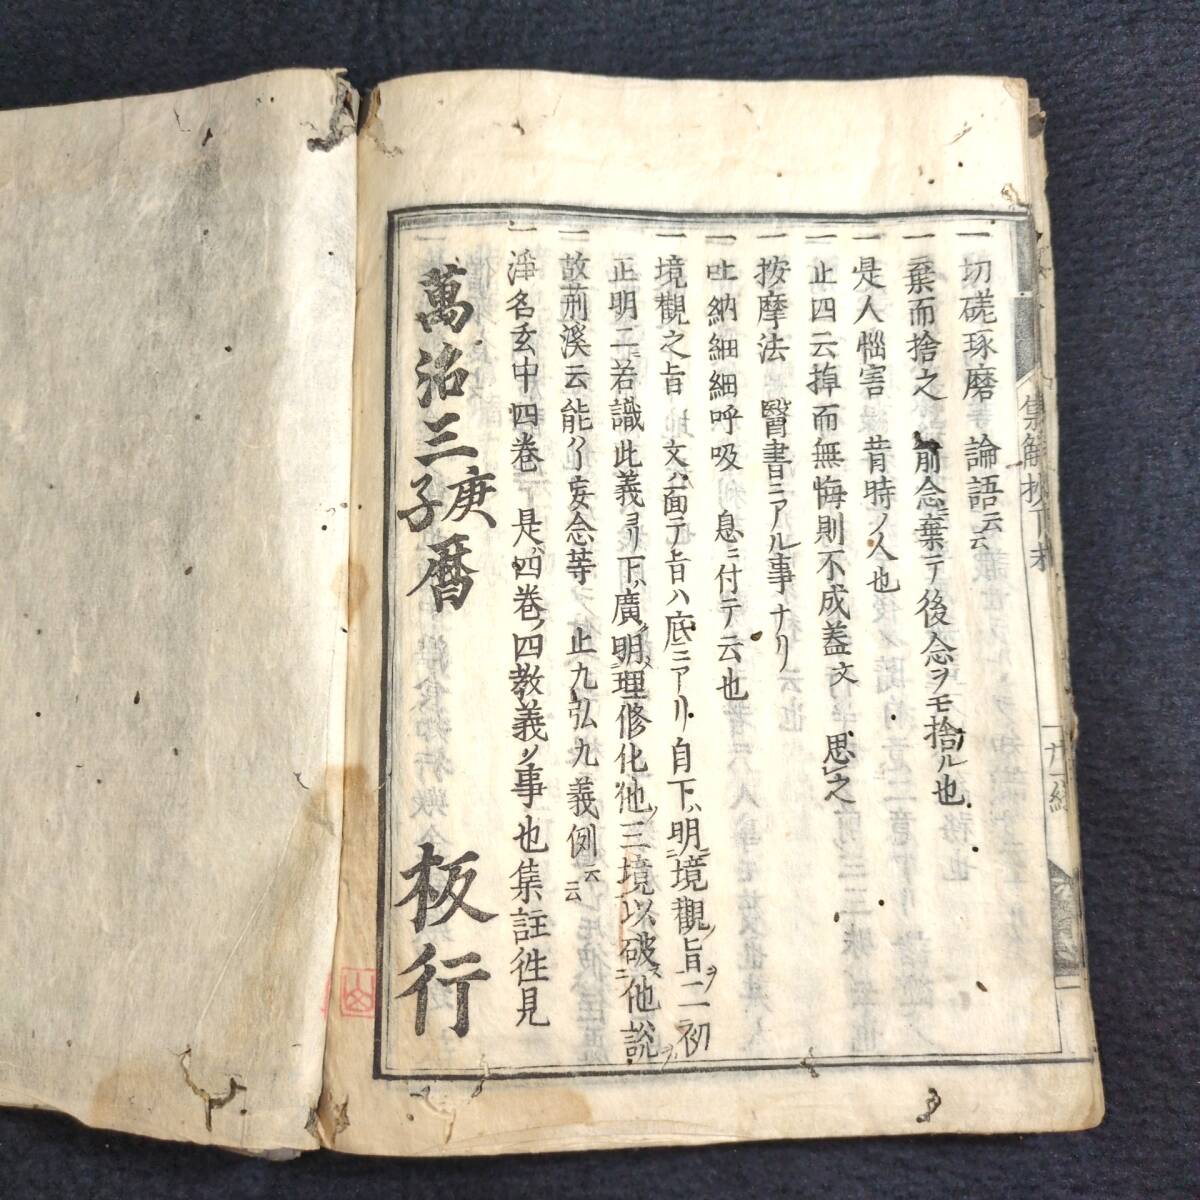 一切磋琢磨 論語云云
一棄而捨之 前念ニ棄テ後念ヲモ捨ル也
一是人惱害 昔時ノ人也
一止四云掉而無悔則不成蓋文 思之
一按摩法 醫書ニアル事ナリ
一吐納細細呼吸 息ニ付テ云也
一境觀之旨 文ハ面テ旨ハ底ニアリ自下ハ明境觀旨二初
正明二若識此義ヨリ下ハ廣明理修化他三境以破他説
一故荊溪云能 妄念等 止九弘九義例云云
一淨名玄中四巻 是ハ四巻ノ四教義ノ事也集註徃見
萬治三庚子暦 板行
集解抄下末